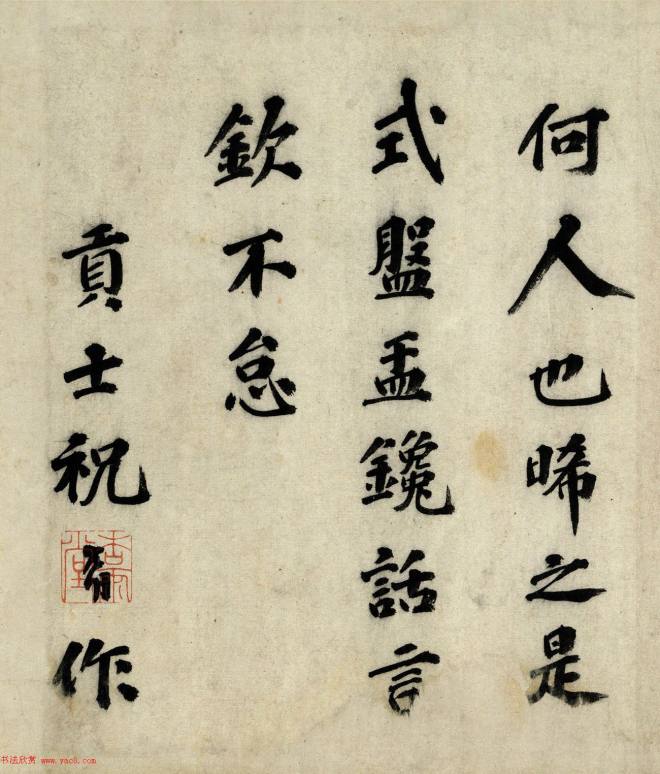 何人也晞之是
式盤盂鑱話言
欽不怠
貢士祝作
书法欣赏 www.yac8.com